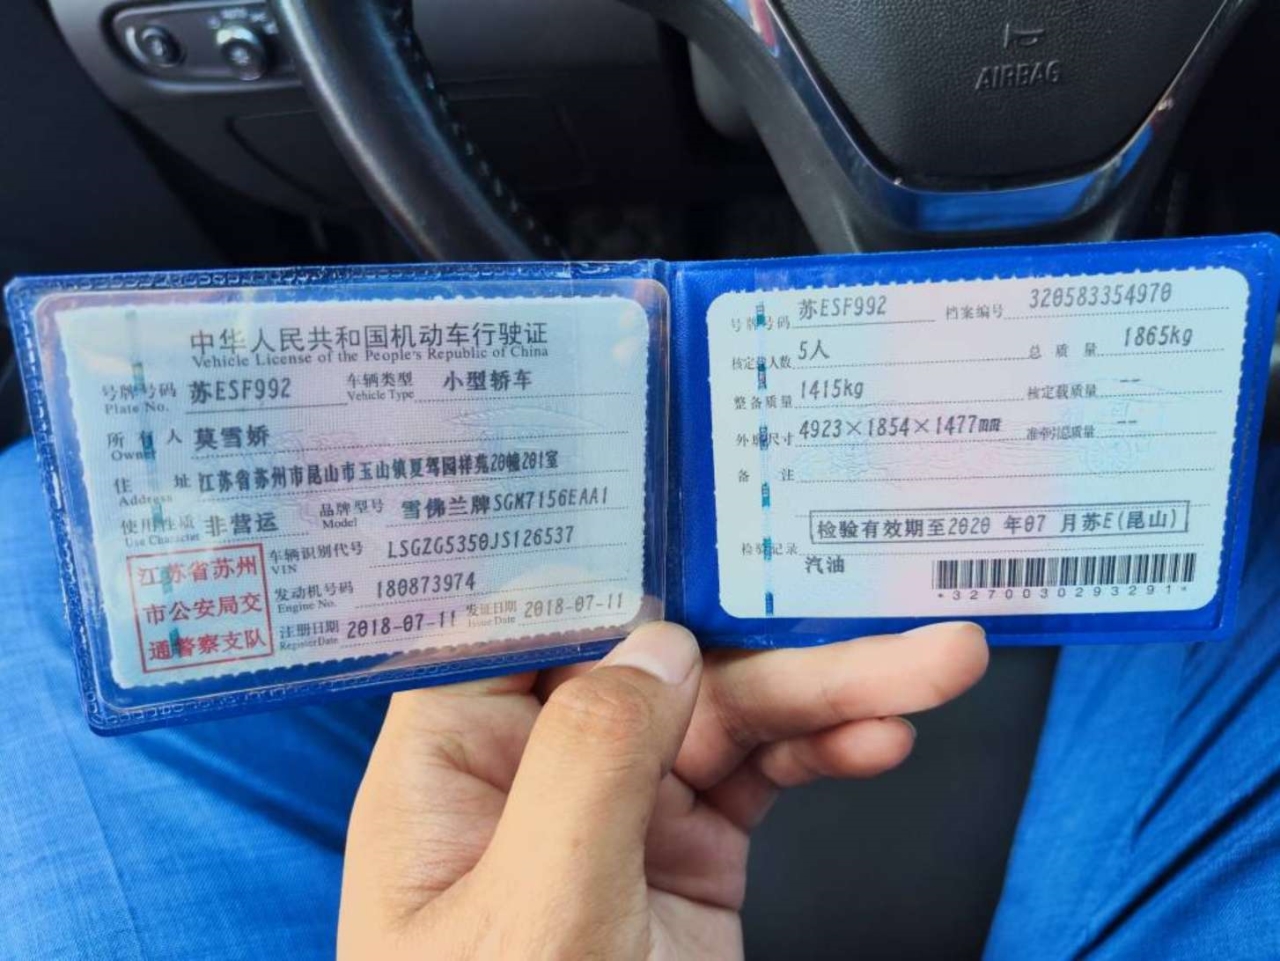 AIRBAG
中华人民共和国机动车行驶证
Vehicle License of the People's Republic of China
号牌号码 苏ESF992 车辆类型 小型轿车
Plate No. Vehicle Type
所有人 莫雪娇
Owner
住址 江苏省苏州市昆山市玉山镇夏驾园祥苑20幢201室
Address
使用性质 非营运 品牌型号 雪佛兰牌SGM7156EAA1
Use Character Model
江苏省苏州
市公安局交
通警察支队
车辆识别代号 LSGZG5350JS126537
VIN
发动机号码 180873974
Engine No.
注册日期 2018-07-11 发证日期 2018-07-11
Register Date Issue Date
号牌号码 苏ESF992 档案编号 320583354970
核定载人数 5人 总质量 1865kg
整备质量 1415kg 核定载质量 --
外廓尺寸 4923×1854×1477mm 准牵引总质量 --
备注
检验有效期至2020年07月苏E(昆山)
检验记录
汽油
*3270030293291*